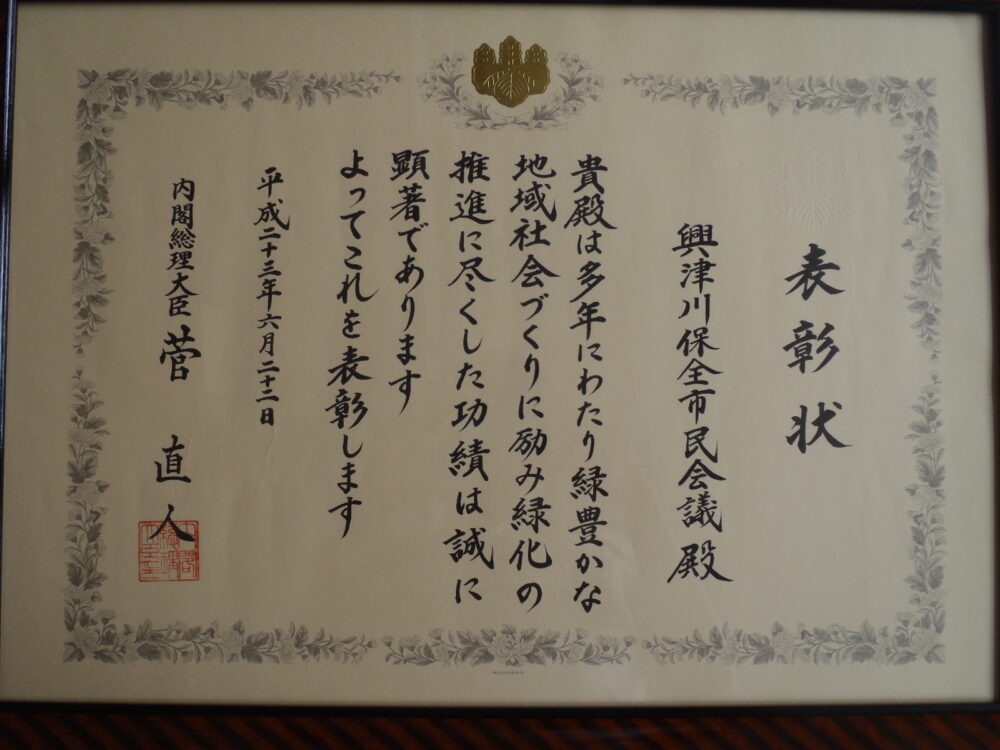 表彰状
興津川保全市民会議 殿
貴殿は多年にわたり緑豊かな
地域社会づくりに励み緑化の
推進に尽くした功績は誠に
顕著であります
よってこれを表彰します
平成二十三年六月二十二日
内閣総理大臣 菅 直人